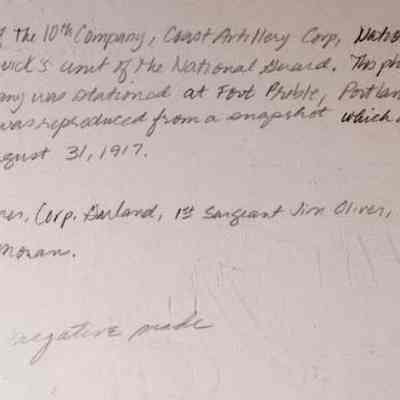 The 10th Company, Coast Artillery Corp, Natio
wick's unit of the National Guard. This ph
any was stationed at Fort Preble, Portlan
was reproduced from a snapshot which
gust 31, 1917.
ner, Corp. Garland, 1st Sargeant Jim Oliver,
Moran.
negative made